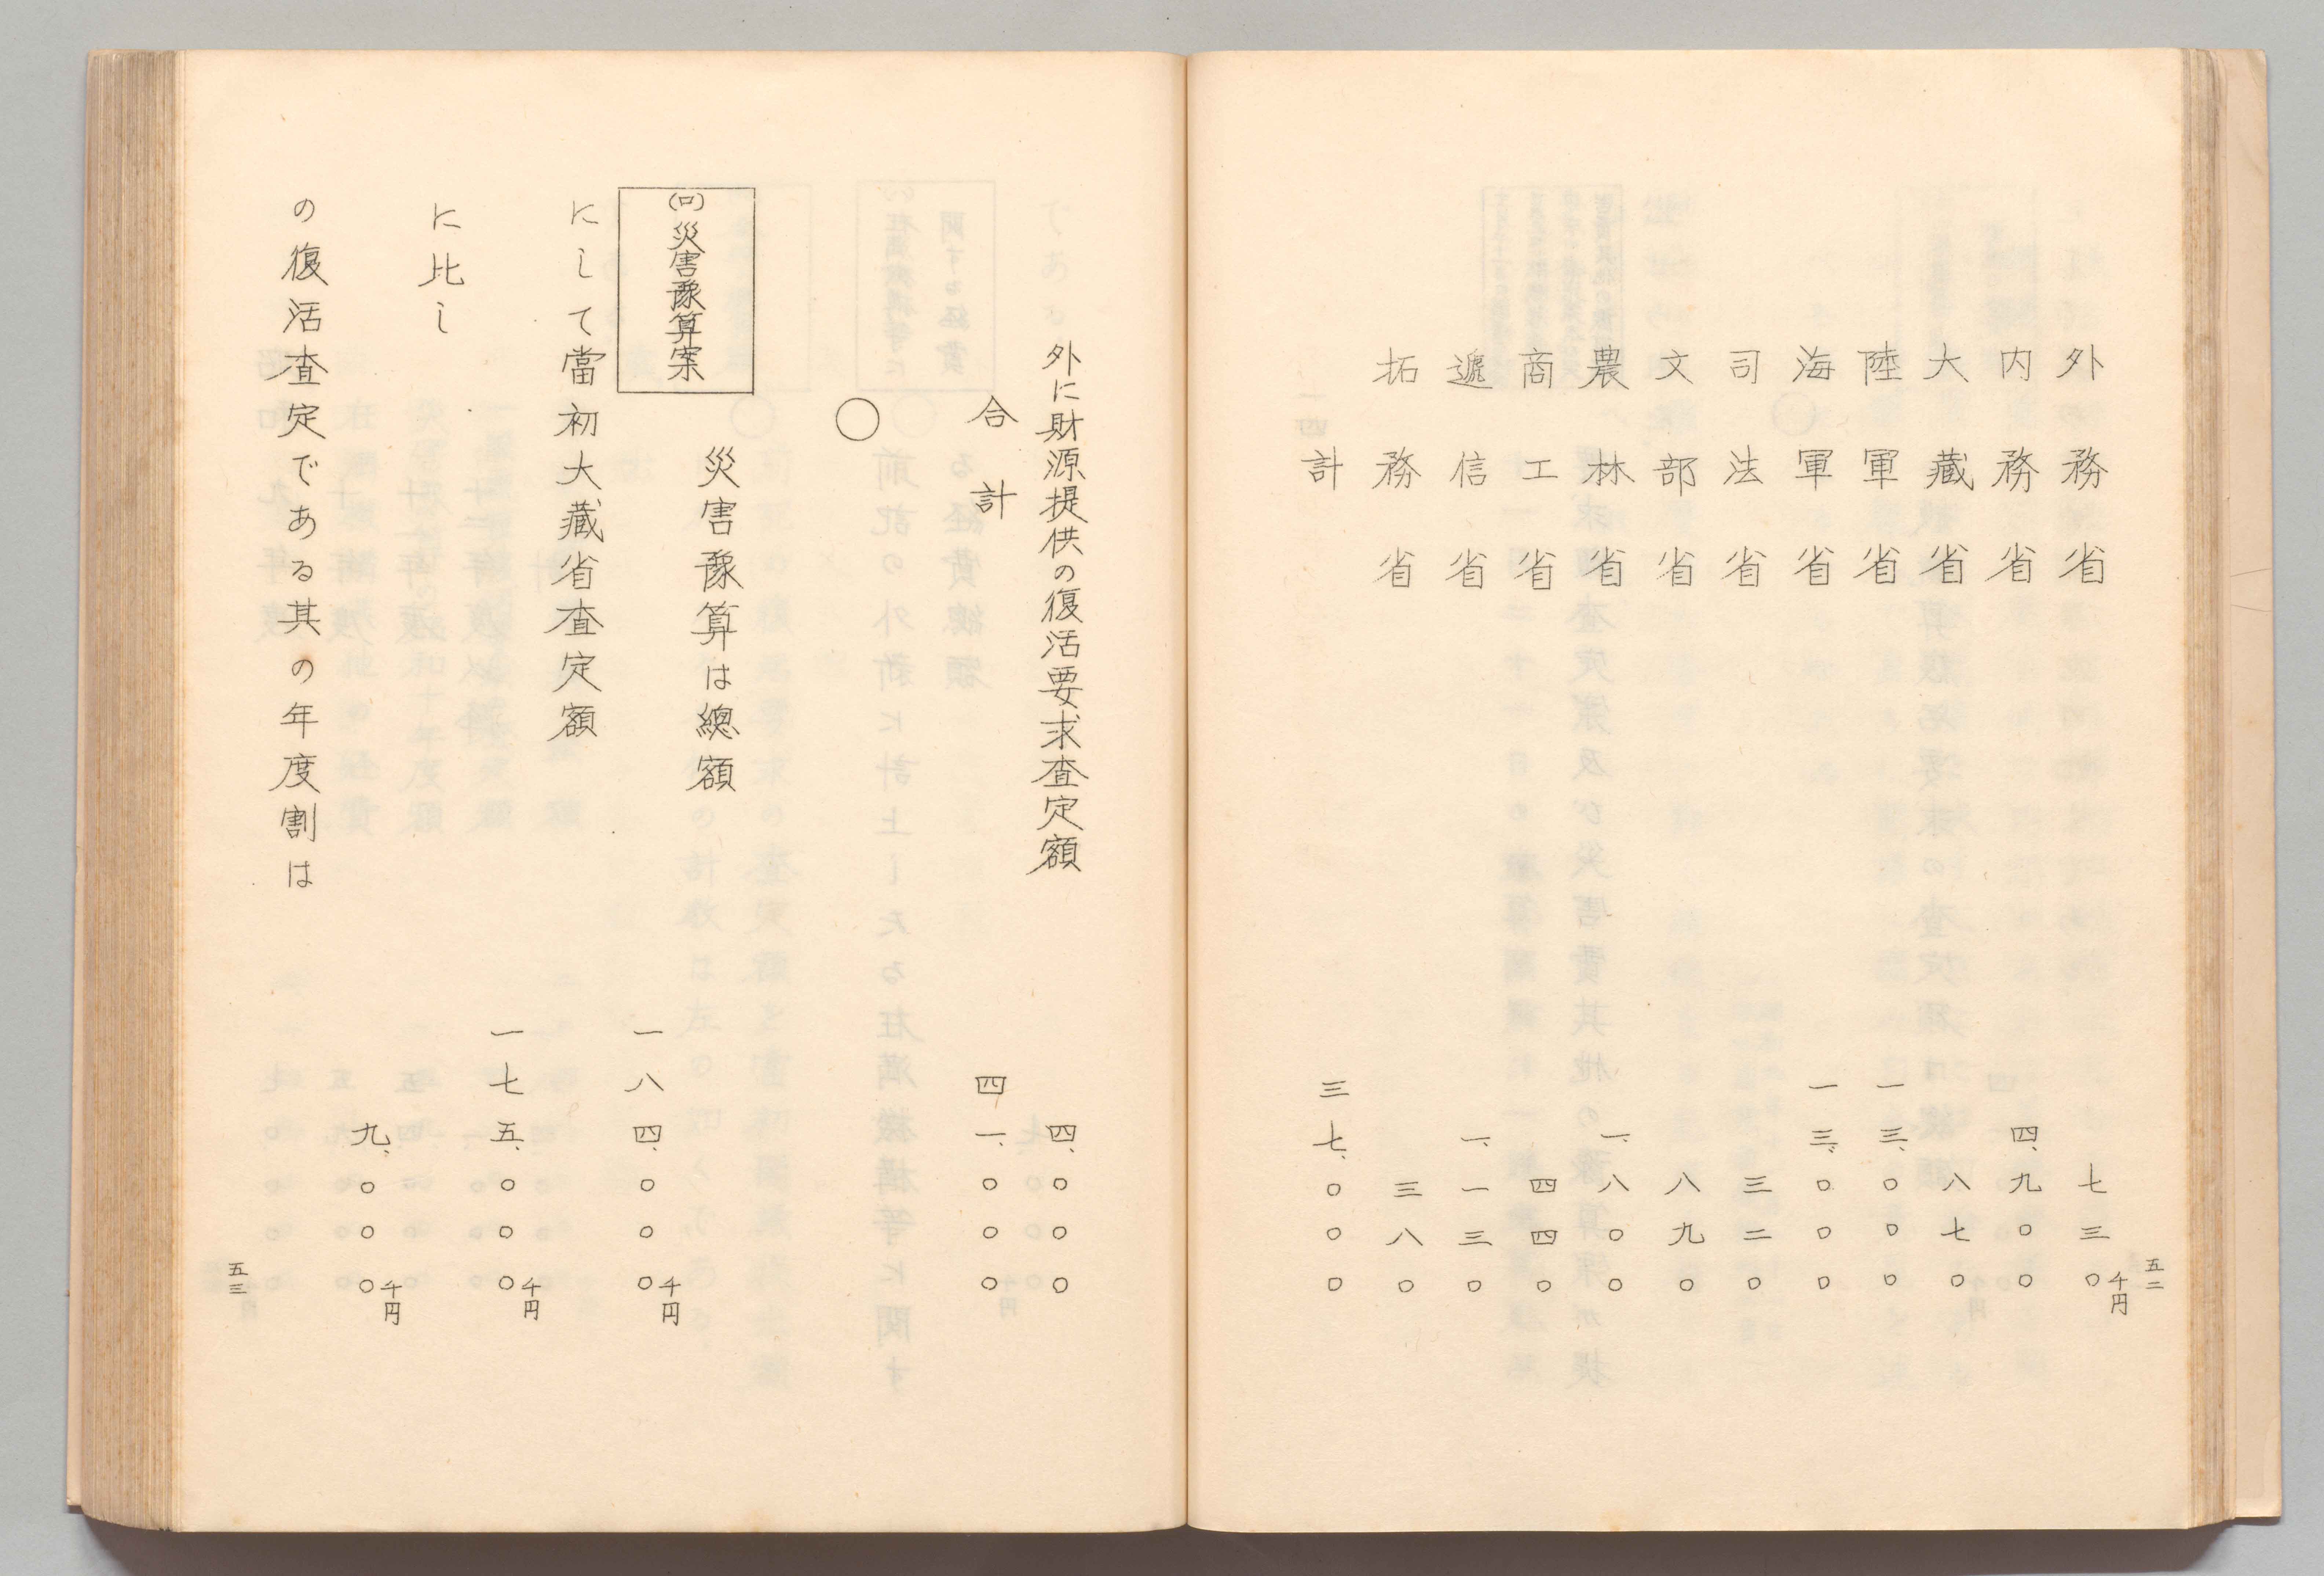 五二
外務省 七三〇千円
内務省 四、九〇〇
大藏省 八七〇
陸軍省 一三、〇〇〇
海軍省 一三、〇〇〇
司法省 三二〇
文部省 八九〇
農林省 一、八〇〇
商工省 四四〇
遞信省 一、一三〇
拓務省 三八〇
計 三七、〇〇〇
外に財源提供の復活要求査定額 四、〇〇〇
合計 四一、〇〇〇
○
(ロ)災害豫算案
災害豫算は總額 一八四、〇〇〇千円
にして當初大藏省査定額 一七五、〇〇〇千円
に比し 九、〇〇〇千円
の復活査定である其の年度割は
五三